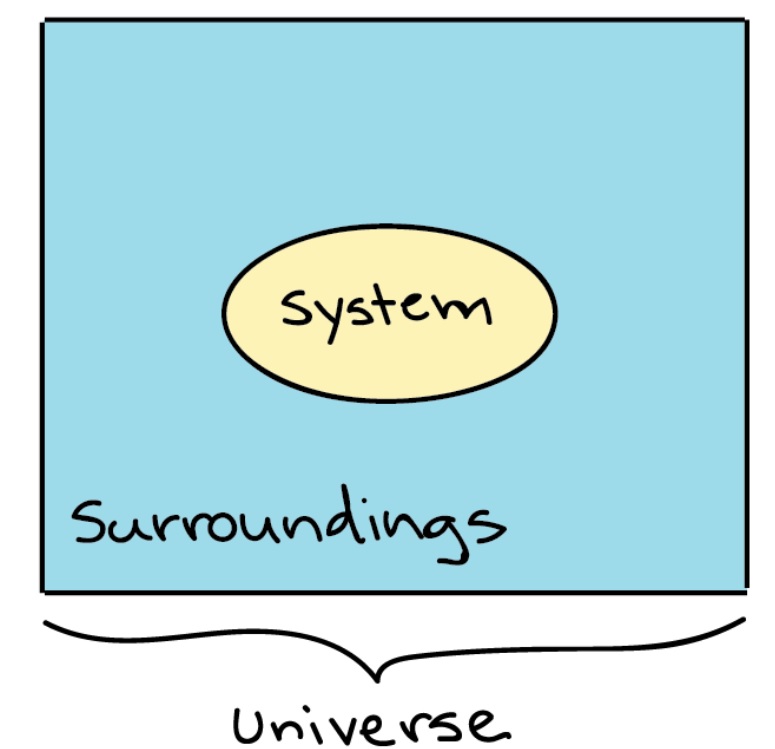 System
Surroundings
Universe